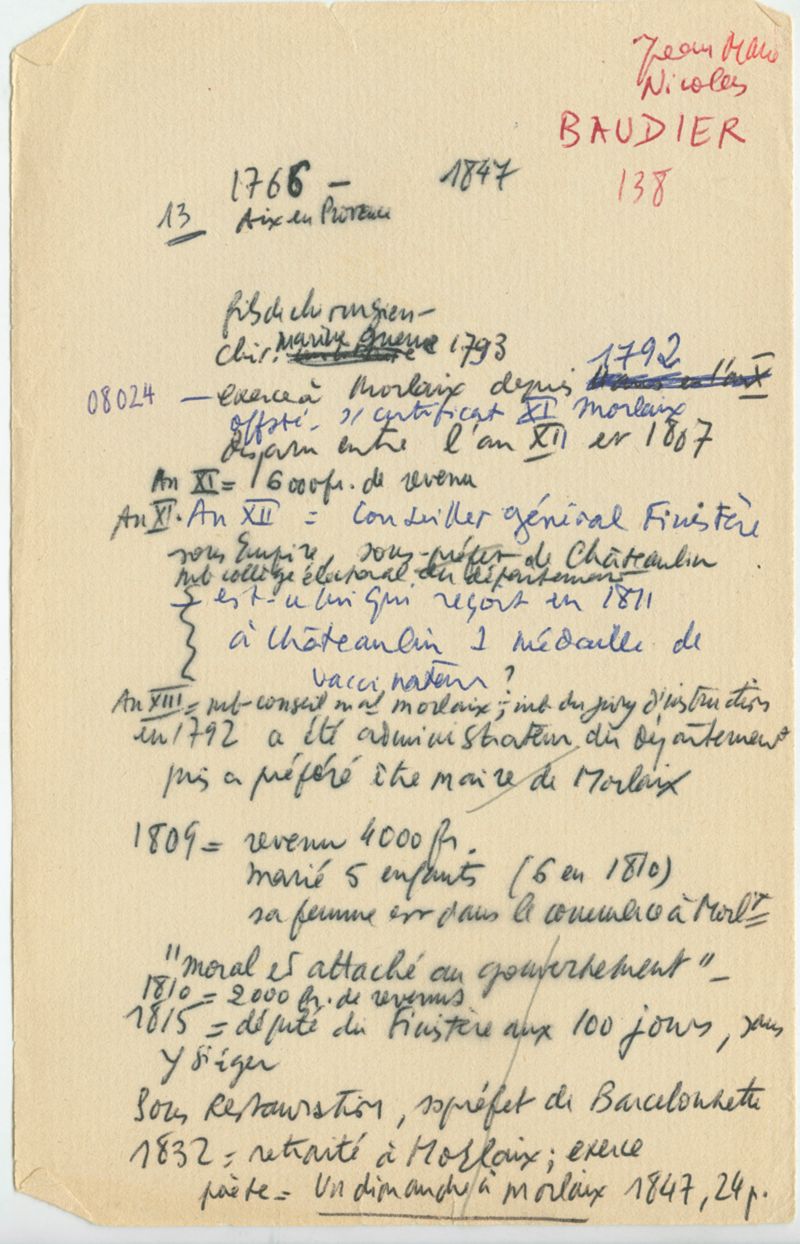 Jean Marie
Nicolas
BAUDIER
138
1766 – 1847
13 Aix en Provence
fils de chirurgien –
chir. marine guerre 1793
1792
08024 – exerce à Morlaix depuis
off. sté. s/ certificat XI Morlaix
disparu entre l'an XII et 1807
An XI = 6000 fr. de revenu
An XI. An XII = Conseiller général Finistère
sous Empire, sous-préfet de Châteaulin
mb collège électoral du département
→ est-ce lui qui reçoit en 1811
à Châteaulin 1 médaille de
vaccinateur ?
An XIII = mb conseil mal Morlaix ; mb du jury d'instruction
en 1792 a été administrateur du Département
puis a préféré être maire de Morlaix
1809 = revenu 4000 fr.
marié 5 enfants (6 en 1810)
sa femme est dans le commerce à Morlx
"moral et attaché au gouvernement" –
1810 = 2000 fr. de revenus
1815 = député du Finistère aux 100 jours, sans
y siéger
Sous Restauration, s/préfet de Barcelonnette
1832 = retraité à Morlaix ; exerce
poète = Un dimanche à Morlaix 1847, 24 p.